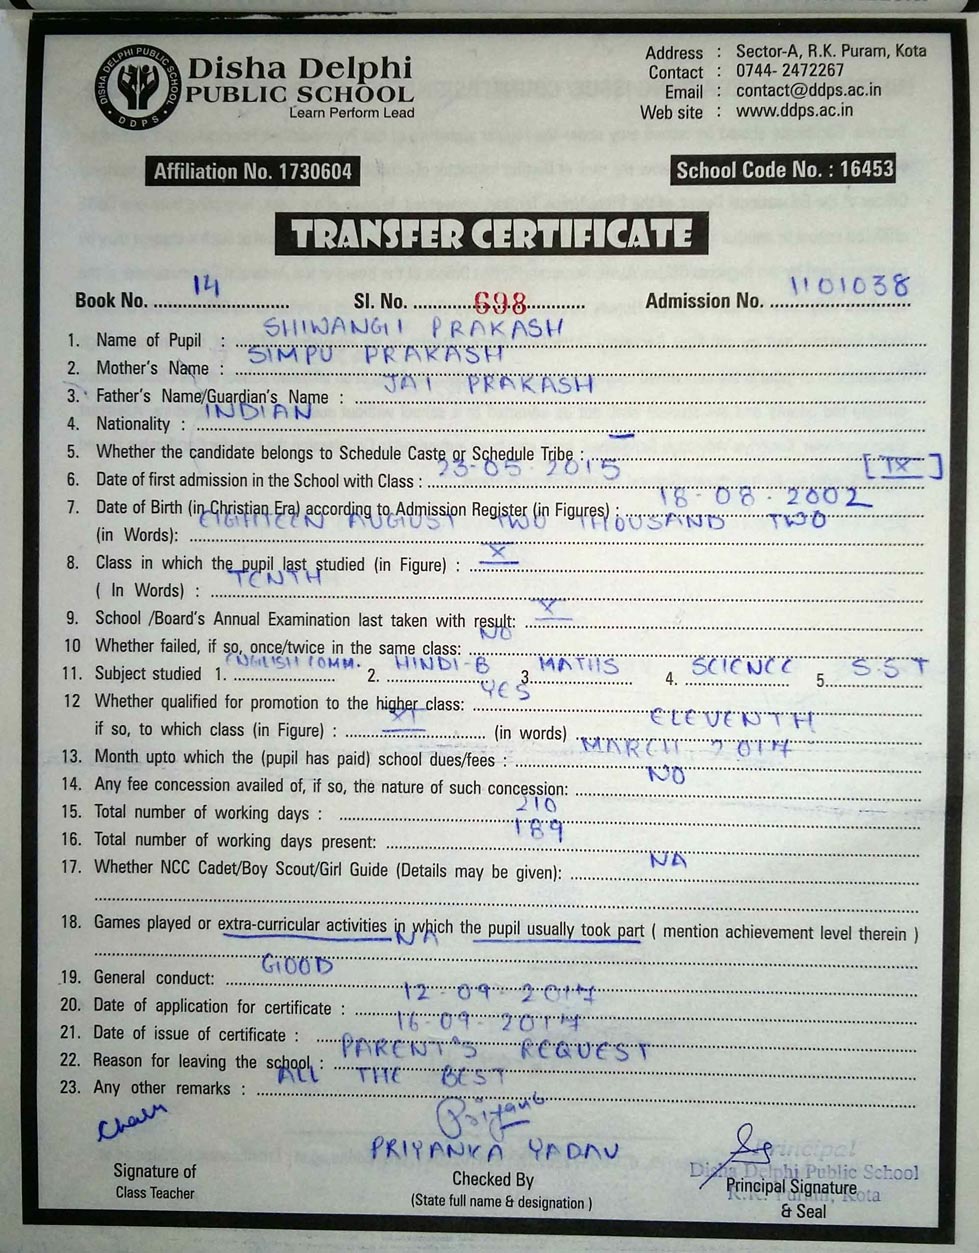 DISHA DELPHI PUBLIC SCHOOL
DDPS
Disha Delphi
PUBLIC SCHOOL
Learn Perform Lead
Address : Sector-A, R.K. Puram, Kota
Contact : 0744- 2472267
Email : contact@ddps.ac.in
Web site : www.ddps.ac.in
Affiliation No. 1730604
School Code No. : 16453
TRANSFER CERTIFICATE
Book No. 14 Sl. No. 698 Admission No. 1101038
1. Name of Pupil : SHIWANGI PRAKASH
2. Mother's Name : SIMPU PRAKASH
3. Father's Name/Guardian's Name : JAI PRAKASH
4. Nationality : INDIAN
5. Whether the candidate belongs to Schedule Caste or Schedule Tribe : —
6. Date of first admission in the School with Class : 23-05-2015 [IX]
7. Date of Birth (in Christian Era) according to Admission Register (in Figures) : 18-08-2002
(in Words): EIGHTEEN AUGUST TWO THOUSAND TWO
8. Class in which the pupil last studied (in Figure) : X
( In Words) : TENTH
9. School /Board's Annual Examination last taken with result: X
10 Whether failed, if so, once/twice in the same class: NO
11. Subject studied 1. ENGLISH COMM. 2. HINDI-B 3. MATHS 4. SCIENCE 5. S.S.T
12 Whether qualified for promotion to the higher class: YES
if so, to which class (in Figure) : XI (in words) ELEVENTH
13. Month upto which the (pupil has paid) school dues/fees : MARCH-2017
14. Any fee concession availed of, if so, the nature of such concession: NO
15. Total number of working days : 210
16. Total number of working days present: 189
17. Whether NCC Cadet/Boy Scout/Girl Guide (Details may be given): NA
18. Games played or extra-curricular activities in which the pupil usually took part ( mention achievement level therein )
NA
19. General conduct: GOOD
20. Date of application for certificate : 12-09-2017
21. Date of issue of certificate : 16-09-2017
22. Reason for leaving the school : PARENT'S REQUEST
23. Any other remarks : ALL THE BEST
PRIYANKA YADAV
Principal
Disha Delphi Public School
R.K. Puram, Kota
Signature of
Class Teacher
Checked By
(State full name & designation )
Principal Signature
& Seal